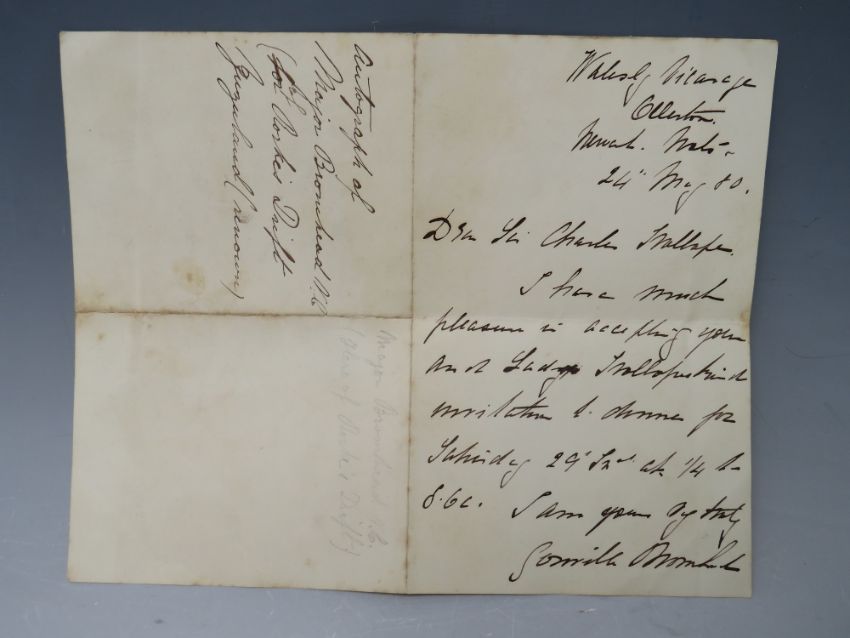 Walesby Vicarage
Ollerton.
Newark. Notts.
24th May 80.
Dear Sir Charles Trollope.
I have much
pleasure in accepting your
and Lady Trollope's kind
invitation to dinner for
Saturday 29th at 1/4 to
8.
I am yours very truly
Gonville Bromhead
Autograph of
Major Bromhead V.C
(for Rorke's Drift
Zululand renown)
Major Bromhead V.C.
(Hero of Rorke's Drift)